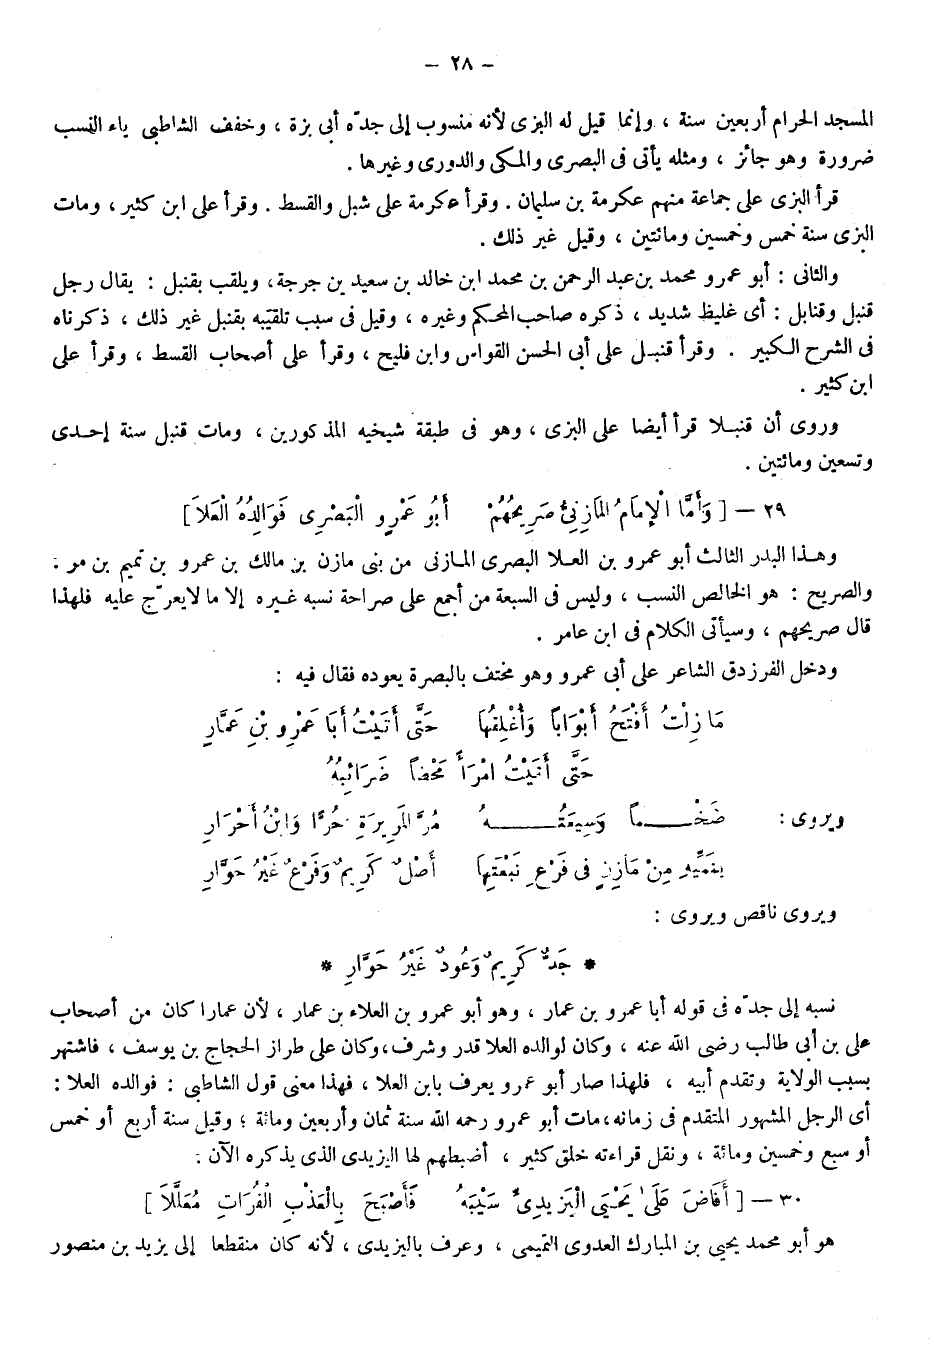 – ٢٨ –
المسجد الحرام أربعين سنة ، وإنما قيل له البزى لأنه منسوب إلى جدّه أبى بزة ، وخفف الشاطبى ياء النسب
ضرورة وهو جائز ، ومثله يأتى فى البصرى والمكى والدورى وغيرها .
قرأ البزى على جماعة منهم عكرمة بن سليمان . وقرأ عكرمة على شبل والقسط . وقرأ على ابن كثير ، ومات
البزى سنة خمس وخمسين ومائتين ، وقيل غير ذلك .
والثانى : أبو عمرو محمد بن عبد الرحمن بن محمد ابن خالد بن سعيد بن جرجة ، ويلقب بقنبل : يقال رجل
قنبل وقنابل : أى غليظ شديد ، ذكره صاحب المحكم وغيره ، وقيل فى سبب تلقيبه بقنبل غير ذلك ، ذكرناه
فى الشرح الكبير . وقرأ قنبل على أبى الحسن القواس وابن فليح ، وقرأ على أصحاب القسط ، وقرأ على
ابن كثير .
وروى أن قنبلا قرأ أيضا على البزى ، وهو فى طبقة شيخيه المذكورين ، ومات قنبل سنة إحدى
وتسعين ومائتين .
٢٩ – [ وَأَمَّا الْإِمَامُ المَازِنِىُّ صَرِيحُهُمْ أَبُو عَمْرٍو الْبَصْرِى فَوَالِدُهُ الْعَلاَ ]
وهذا البدر الثالث أبو عمرو بن العلا البصرى المازنى من بنى مازن بن مالك بن عمرو بن تميم بن مر :
والصريح : هو الخالص النسب ، وليس فى السبعة من أجمع على صراحة نسبه غيره إلا ما لا يعرّج عليه فلهذا
قال صريحهم ، وسيأتى الكلام فى ابن عامر .
ودخل الفرزدق الشاعر على أبى عمرو وهو مختف بالبصرة يعوده فقال فيه :
مَا زِلْتُ أَفْتَحُ أَبْوَاباً وَأُغْلِقُهَا حَتَّى أَتَيْتُ أَبَا عَمْرِو بْنِ عَمَّارِ
حَتَّى أَتَيْتُ امْرَأً مَحْضاً ضَرَائِبُهُ
ويروى : ضَخْماً وَسِيعَتُهُ مُرَّ المَرِيرَةِ حُرًّا وَابْنُ أَحْرَارِ
يَنْمِيهِ مِنْ مَازِنٍ فى فَرْعِ نَبْعَتِهَا أَصْلٌ كَرِيمٌ وَفَرْعٌ غَيْرُ حَوَّارِ
ويروى ناقص ويروى :
* جَدٌّ كَرِيمٌ وَعُودٌ غَيْرُ حَوَّارِ *
نسبه إلى جدّه فى قوله أبا عمرو بن عمار ، وهو أبو عمرو بن العلاء بن عمار ، لأن عمارا كان من أصحاب
على بن أبى طالب رضى الله عنه ، وكان لوالده العلا قدر وشرف ، وكان على طراز الحجاج بن يوسف ، فاشتهر
بسبب الولاية وتقدم أبيه ، فلهذا صار أبو عمرو يعرف بابن العلا ، فهذا معنى قول الشاطبى : فوالده العلا :
أى الرجل المشهور المتقدم فى زمانه ، مات أبو عمرو رحمه الله سنة ثمان وأربعين ومائة ؛ وقيل سنة أربع أو خمس
أو سبع وخمسين ومائة ، ونقل قراءته خلق كثير ، أضبطهم لها اليزيدى الذى يذكره الآن :
٣٠ – [ أَفَاضَ عَلَى يَحْيَى الْيَزِيدِىِّ سَيْبَهُ فَأَصْبَحَ بِالْعَذْبِ الْفُرَاتِ مُعَلَّلاَ ]
هو أبو محمد يحيى بن المبارك العدوى التميمى ، وعرف باليزيدى ، لأنه كان منقطعا إلى يزيد بن منصور